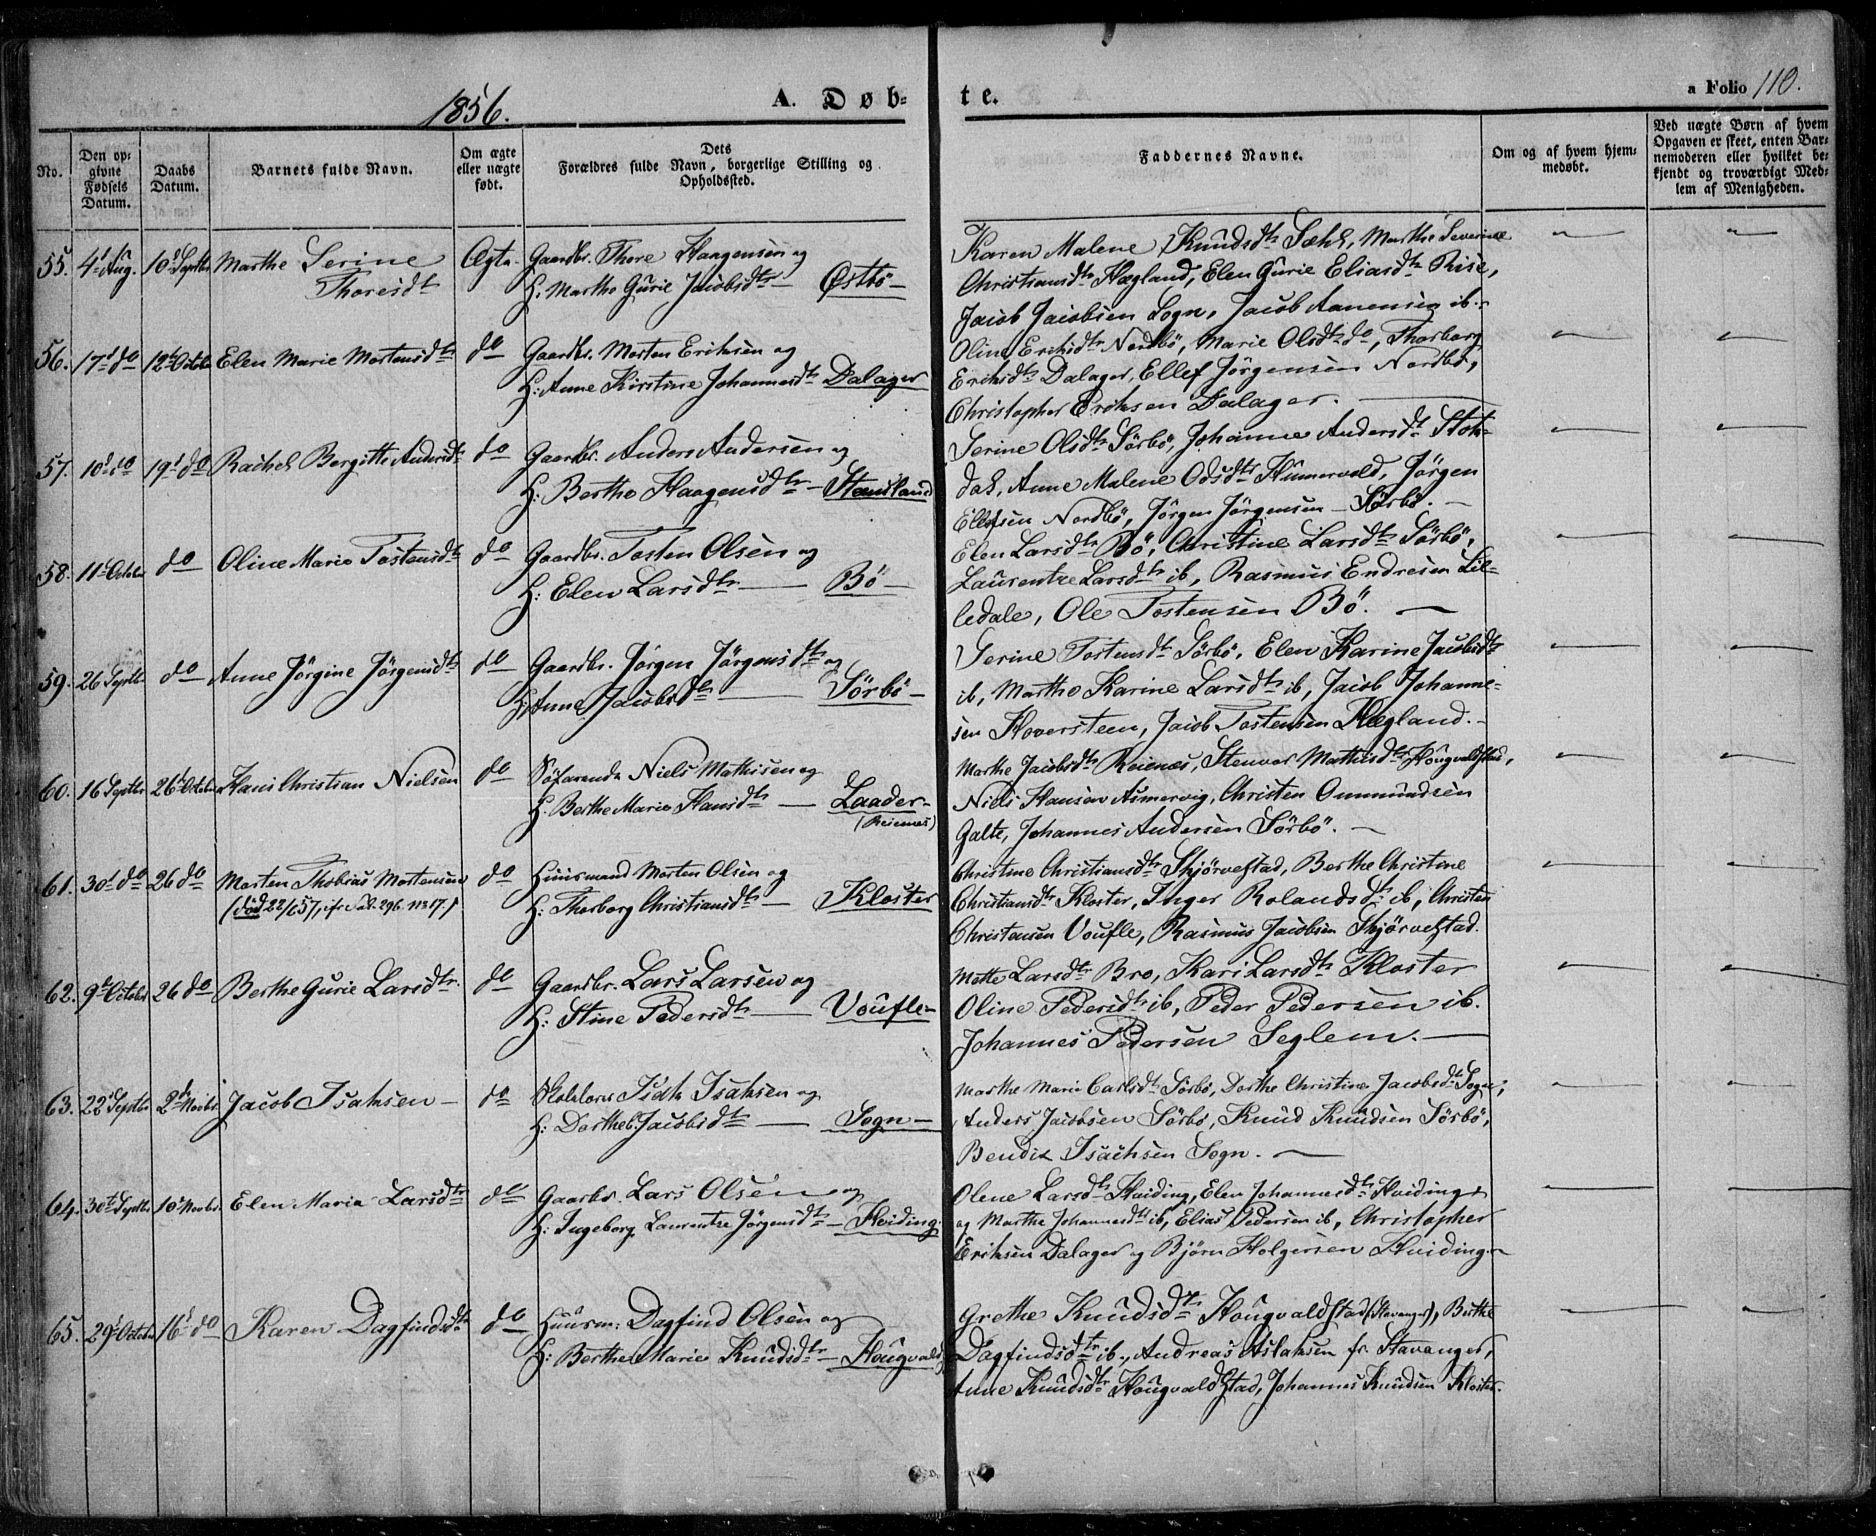 1856.
A. Døb-
te.
a Folio 110.
No.
Den op-
givne
Fødsels
Datum.
Daabs
Datum.
Barnets fulde Navn.
Om ægte
eller uægte
født.
Dets
Forældres fulde Navn, borgerlige Stilling og
Opholdssted.
Faddernes Navne.
Om og af hvem hjem-
medøbt.
Ved uægte Børn af hvem
Opgaven er skeet, enten Bar-
nemoderen eller hvilket be-
kjendt og troværdigt Med-
lem af Menigheden.
55. 4d Aug. 10d Septbr Marthe Serine
Thoresdtr
Ægte Gaardbr. Thore Haagensen og
H: Marthe Gurie Jacobsdtr — Østbö —
Karen Malene Knudsdtr Sæhl, Marthe Severine
Christiansdtr Hægland, Elen Gurie Eliasdtr Rise,
Jacob Jacobsen Sogn, Jacob Aanensen ib.
56. 17d do 12t Octobr Elen Marie Mortensdtr do Gaardbr. Morten Eriksen og
H: Anne Kirstine Johannesdtr Dalager
Oline Eriksdtr Nordbö, Marie Olsdtr do, Thorborg
Eriksdtr Dalager, Ellef Jörgensen Nordbö,
Christopher Eriksen Dalager. —
57. 10d do 19d do Rachel Bergitte Andersdtr do Gaardbr. Anders Andersen og
H: Berthe Haagensdtr — Hausland
Serine Olsdtr Sörbö, Johanne Andersdtr Stok-
dal, Anne Malene Odsdtr Hummervold, Jörgen
Ellefsen Nordbö, Jörgen Jörgensen — Sörbö. —
58. 11t Octobr do Oline Marie Tostensdtr do Gaardbr. Tosten Olsen og
H: Elen Larsdtr — Bö —
Elen Larsdtr Bö, Christine Larsdtr Sörbö,
Laurentze Larsdtr ib, Rasmus Endresen Lil-
ledale, Ole Tostensen Bö. —
59. 26 Septbr do Anne Jörgine Jörgensdtr do Gaardbr. Jörgen Jörgensdtr og
H: Anne Jacobsdtr — Sörbö —
Serine Tostensdtr Sörbö, Elen Karine Jacobsdtr
ib, Marthe Karine Larsdtr ib, Jacob Johanne-
sen Hoversteen, Jacob Tostensen Hægland. —
60. 16 Septbr 26t Octobr Hans Christian Nielsen do Söfarende Niels Mathisen og
H. Berthe Marie Hansdtr — Laader-
(Reienes)
Marthe Jacobsdtr Reienæs, Stenvor Mathisdtr Hougvaldstad,
Niels Hansen Asmervig, Christen Ommundsen
Galte, Johannes Andersen Sörbö. —
61. 30d do 26 do Morten Thobias Mortensen
(död 22/6 57, cfr Fol. 296 No 17.)
do Huusmand Morten Olsen og
H: Thorborg Christiansdtr — Kloster
Christine Christiansdtr Skjörvestad, Berthe Christine
Christiansdtr Kloster, Inger Rolandsdtr ib, Christen
Christensen Voufle, Rasmus Jacobsen Skjörvestad.
62. 9t Octobr 26 do Berthe Gurie Larsdtr. do Gaardbr. Lars Larsen og
H: Stine Pedersdtr — Voufle —
Mette Larsdtr Bro, Kari Larsdtr Kloster
Oline Pedersdtr ib, Peder Pedersen ib.
Johannes Pedersen Seglem. —
63. 22 Septbr 2d Novbr Jacob Isaksen — do Skolelærer Isak Isaksen og
H: Dortheb. Jacobsdtr — Sogn —
Marthe Marie Carlsdtr Sörbö, Dorthe Christine Jacobsdtr Sogn,
Anders Jacobsen Sörbö, Knud Knudsen Sörbö,
Bendix Isachsen Sogn. —
64. 30t Septbr 10d Novbr. Elen Maria Larsdtr do Gaardbr. Lars Olsen og
H: Ingeborg Laurentze Jörgensdtr — Hviding.
Olene Larsdtr Hviding, Elen Johannesdtr Hviding
og Marthe Johannesdtr ib, Elias Pedersen ib, Christopher
Eriksen Dalager og Bjørn Holgersen Hviding —
65. 29d Octobr 16d do Karen Dagfindsdtr do Huusm: Dagfind Olsen og
H: Berthe Marie Knudsdtr — Hougvalds
Grethe Knudsdtr Hougvaldstad (Stavanger), Berthe
Dagfindsdtr ib., Andreas Aslaksen fr. Stavanger,
Anne Knudsdtr Hougvaldstad, Johannes Knudsen Kloster.